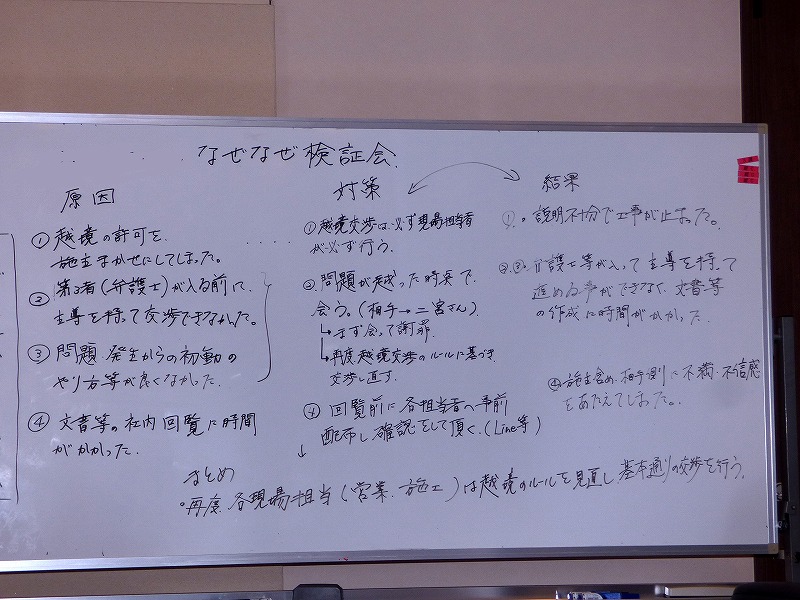 なぜなぜ検証会
原因
①越境の許可を
施主まかせにしてしまった。
②第3者(弁護士)が入る前に、
主導を持って交渉できなかった。
③問題発生からの初動の
やり方等が良くなかった。
④文書等の社内回覧に時間
がかかった。
対策
①越境交渉は必ず現場担当者
が必ず行う。
②問題が起った時点で、
会う。(相手→二宮さん)
↳まず会って謝罪
↳再度越境交渉のルールに基づき
交渉し直す。
④回覧前に各担当者へ事前
配布し確認をして頂く。(Line等)
結果
①。説明不十分で工事が止まった。
②③弁護士等が入って主導を持って
進める事ができなく、文書等
の作成に時間がかかった。
④施主含め、相手側に不満・不信感
をあたえてしまった。
↓
まとめ
・再度、各現場担当(営業、施工)は越境のルールを見直し基本通りの交渉を行う。